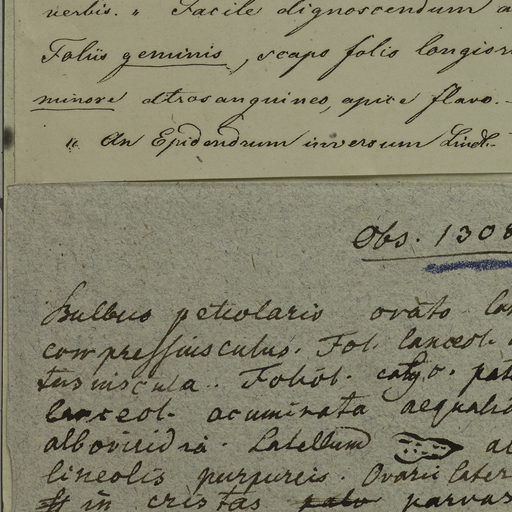 verbis. " Facile dignoscendum a
Foliis geminis, scapo folio longior
minore atrosanguineo, apice flavo. -
" An Epidendrum inversum Lindl.
Obs. 1308
Bulbus petiolaris ovato lan
compressiusculus. Fol. lanceol.
tusiuscula. Foliol. calyc. pat
lanceol. acuminata aequalia
alboviridia. Labellum al
lineolis purpureis. Ovarii later
in cristas parvas